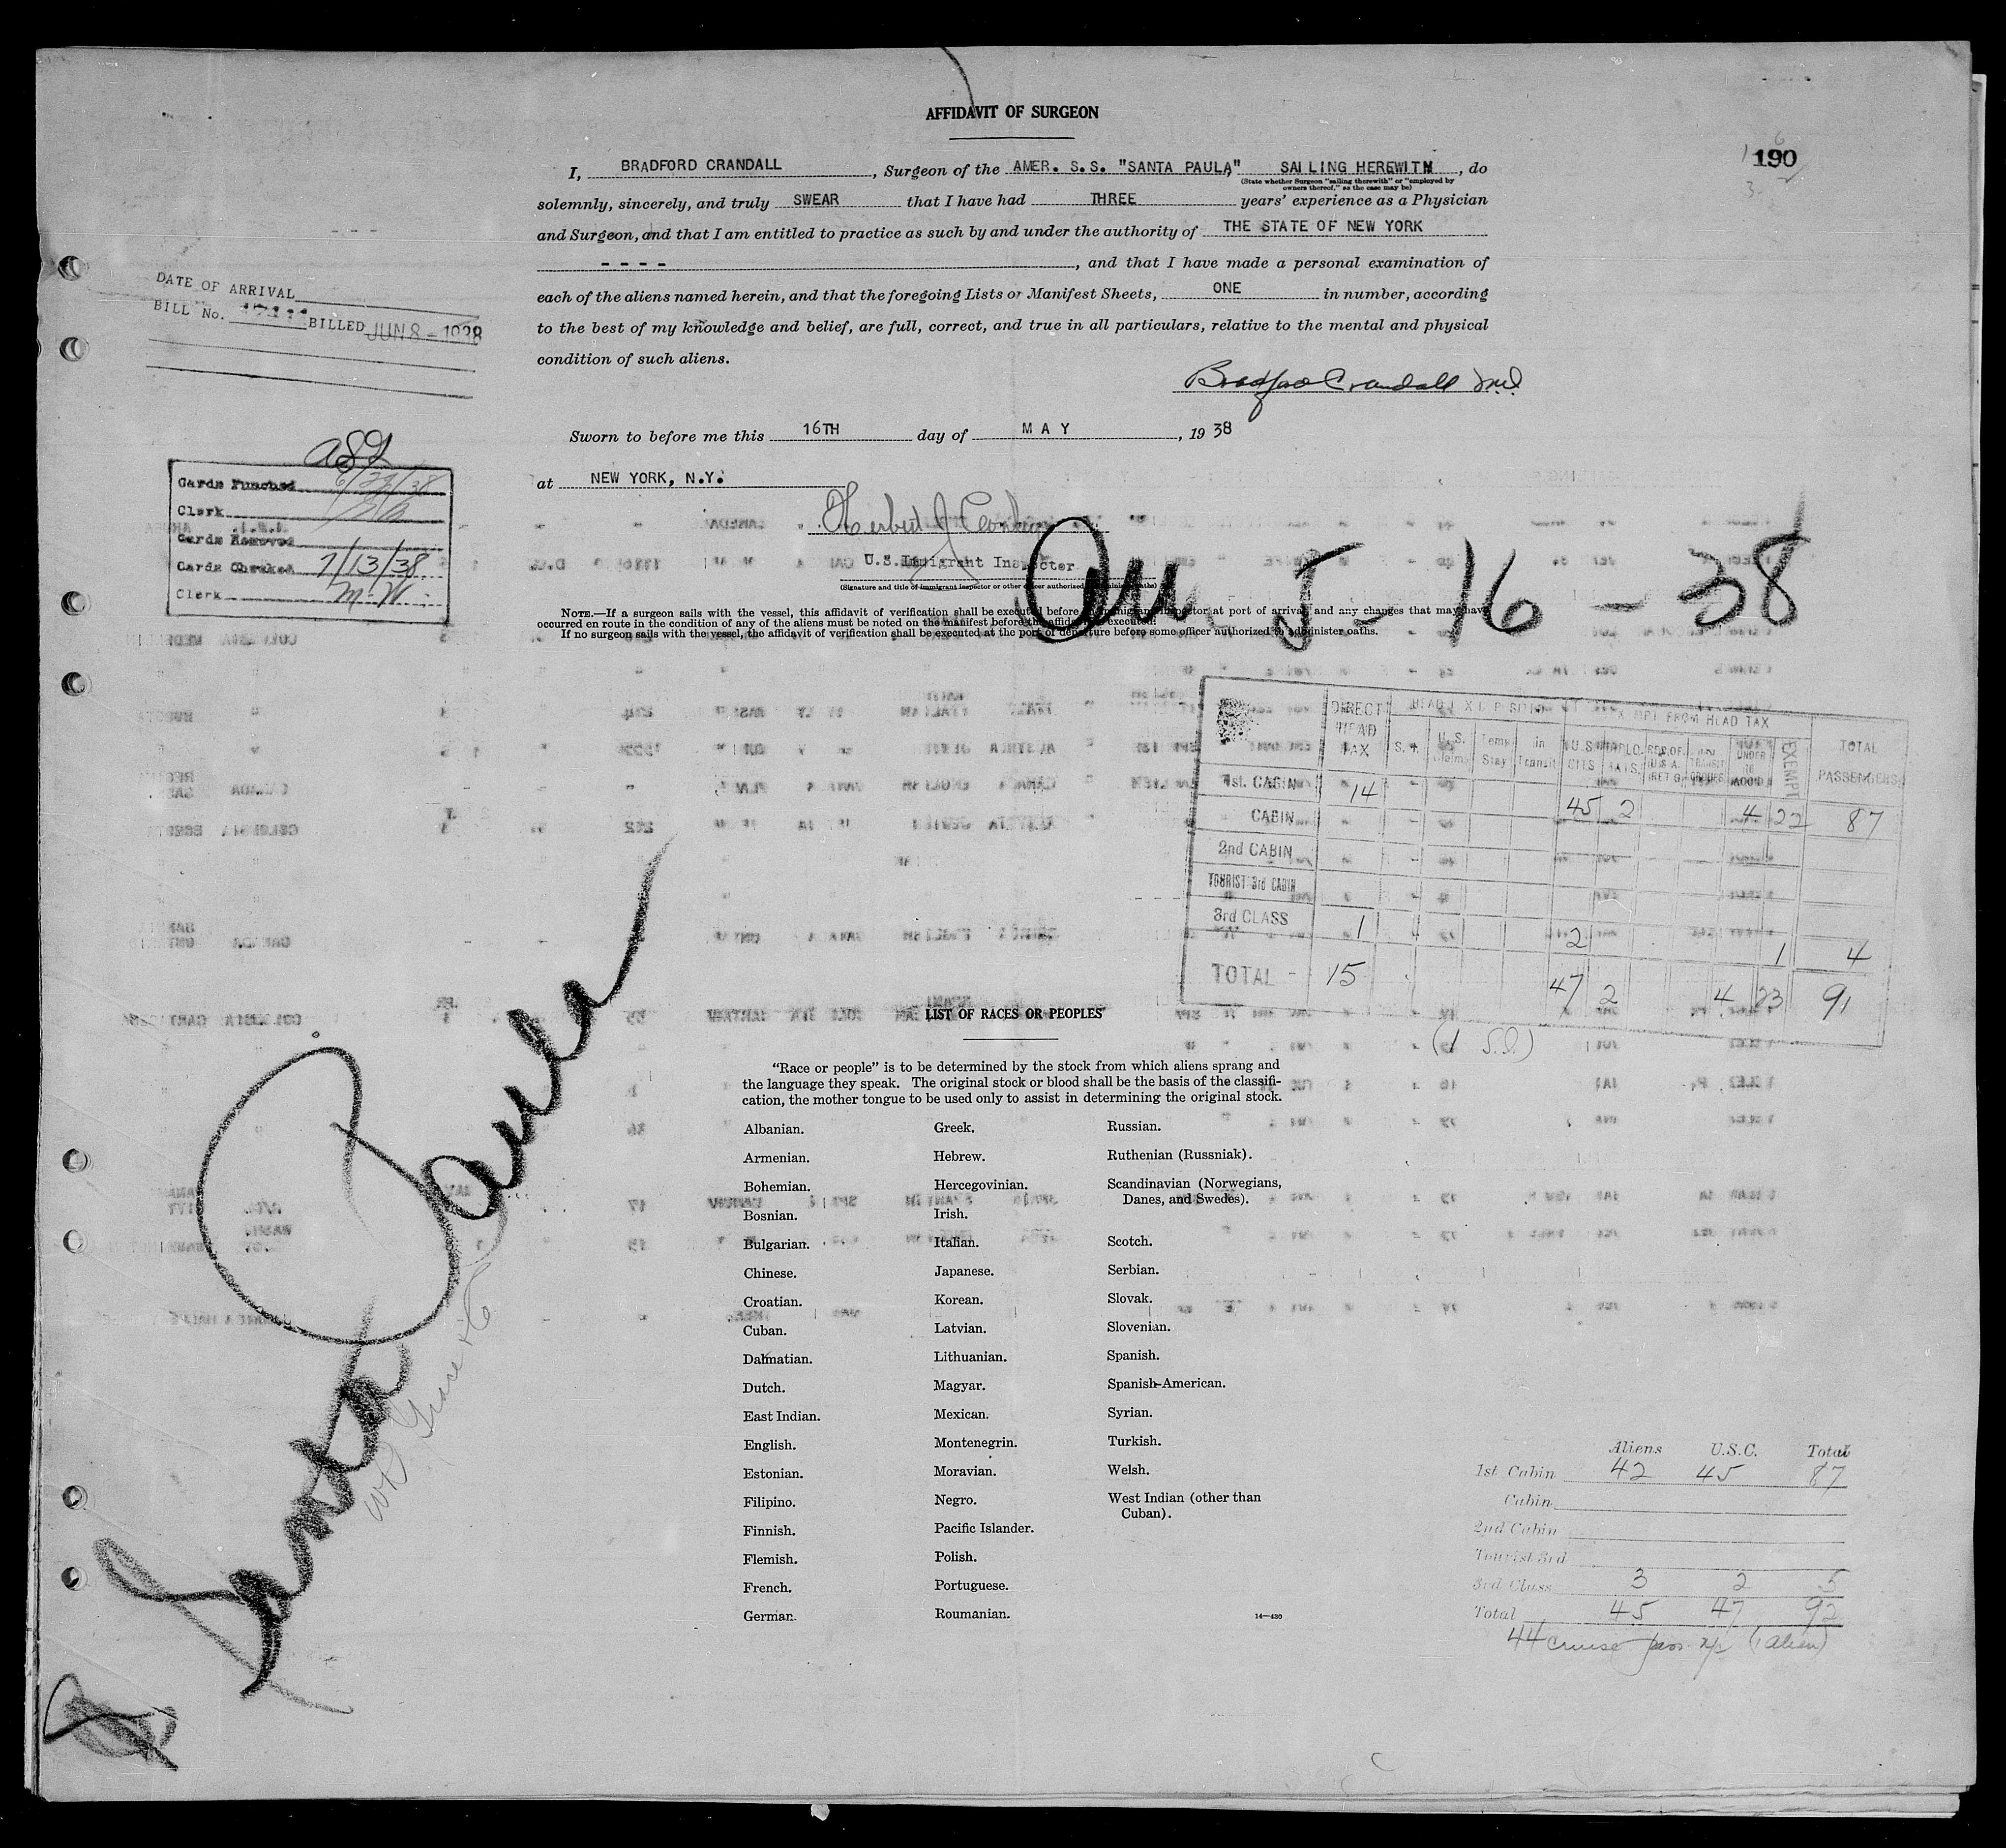 AFFIDAVIT OF SURGEON
190
I, BRADFORD CRANDALL, Surgeon of the AMER. S.S. "SANTA PAULA" SAILING HEREWITH, do
(State whether Surgeon "sailing therewith" or "employed by
owners thereof," as the case may be)
solemnly, sincerely, and truly SWEAR that I have had THREE years' experience as a Physician
and Surgeon, and that I am entitled to practice as such by and under the authority of THE STATE OF NEW YORK
- - - -, and that I have made a personal examination of
each of the aliens named herein, and that the foregoing Lists or Manifest Sheets, ONE in number, according
to the best of my knowledge and belief, are full, correct, and true in all particulars, relative to the mental and physical
condition of such aliens.
Bradford Crandall M.D.
Sworn to before me this 16TH day of MAY, 1938
at NEW YORK, N.Y.
Herbert J
U.S. Immigrant Inspector
(Signature and title of immigrant inspector or other officer authorized to administer oaths)
NOTE.—If a surgeon sails with the vessel, this affidavit of verification shall be executed before an immigrant inspector at port of arrival, and any changes that may have
occurred en route in the condition of any of the aliens must be noted on the manifest before the affidavit is executed.
If no surgeon sails with the vessel, the affidavit of verification shall be executed at the port of departure before some officer authorized to administer oaths.
DATE OF ARRIVAL
BILL No. BILLED JUN 8 - 1938
Cards Punched 6/22/38
Clerk
Cards Removed
Cards Checked 7/13/38
Clerk M.W.
5-16-38
DIRECT HEAD TAX
EXEMPT FROM HEAD TAX
S.I. U.S. Claim Temp Stay in Transit U.S. CITS DIPLO-MATS UNDER 16 EXEMPT TOTAL PASSENGERS
1st. CABIN 14 45 2 4 22 87
CABIN
2nd CABIN
TOURIST 3rd CABIN
3rd CLASS 1 2 1 4
TOTAL 15 47 2 4 23 91
(1 S.I.)
Santa Paula
W R Grace & Co
LIST OF RACES OR PEOPLES
"Race or people" is to be determined by the stock from which aliens sprang and
the language they speak. The original stock or blood shall be the basis of the classifi-
cation, the mother tongue to be used only to assist in determining the original stock.
Albanian.
Armenian.
Bohemian.
Bosnian.
Bulgarian.
Chinese.
Croatian.
Cuban.
Dalmatian.
Dutch.
East Indian.
English.
Estonian.
Filipino.
Finnish.
Flemish.
French.
German.
Greek.
Hebrew.
Hercegovinian.
Irish.
Italian.
Japanese.
Korean.
Latvian.
Lithuanian.
Magyar.
Mexican.
Montenegrin.
Moravian.
Negro.
Pacific Islander.
Polish.
Portuguese.
Roumanian.
Russian.
Ruthenian (Russniak).
Scandinavian (Norwegians,
Danes, and Swedes).
Scotch.
Serbian.
Slovak.
Slovenian.
Spanish.
Spanish-American.
Syrian.
Turkish.
Welsh.
West Indian (other than
Cuban).
14—430
Aliens U.S.C. Total
1st Cabin 42 45 87
Cabin
2nd Cabin
Tourist 3rd
3rd Class 3 2 5
Total 45 47 92
44 cruise pass (1 alien)